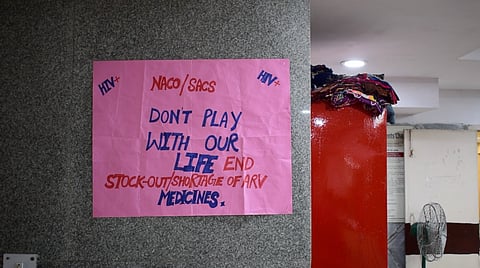 HIV+ NACO/SACS HIV+
DON'T PLAY
WITH OUR
LIFE END
STOCK-OUT/SHORTAGE OF ARV
MEDICINES.